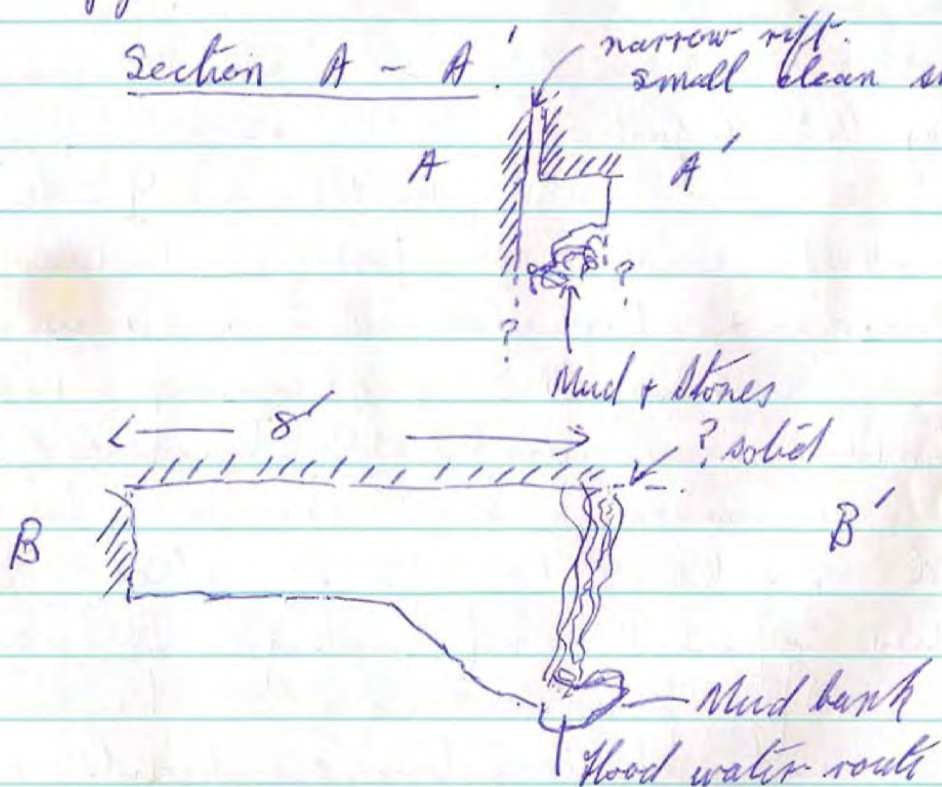 Section A - A'
narrow rift.
small clean
A A'
?
?
Mud + Stones
8'
? solid
B B'
Mud bank
Flood water route